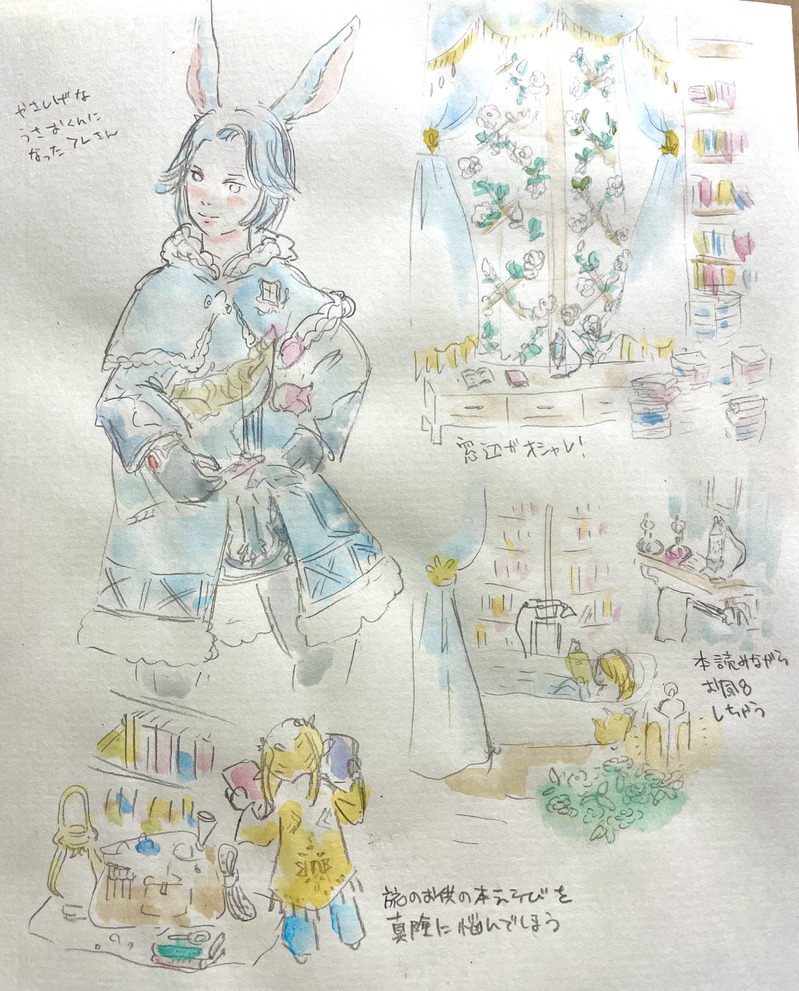 やさしげな
うさおくんに
なったフレさん
窓辺がオシャレ!
本読みながら
お風呂
しちゃう
旅のお供の本えらびを
真険に悩んでしまう